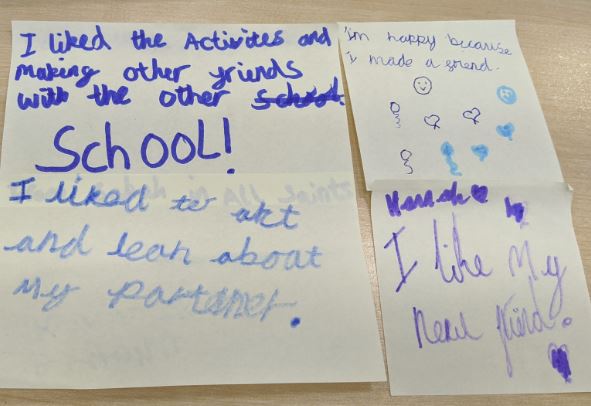 I liked the Activites and
making other friends
with the other school.
SCHOOL!
I'm happy because
I made a friend.
I liked to art
and lean aboat
my partaner.
Hannah
I like My
new friend.